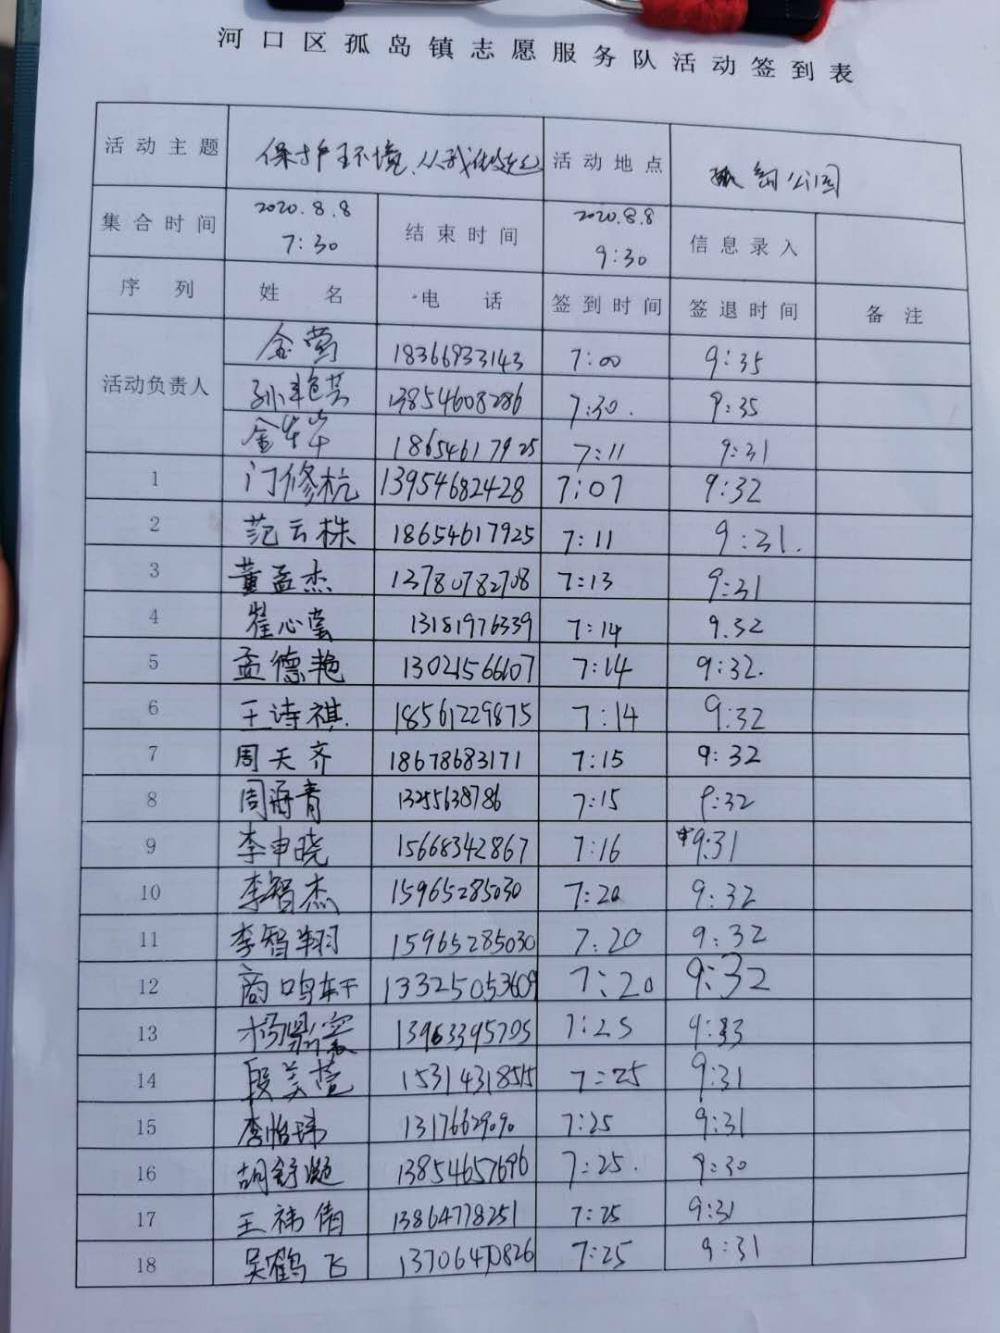 河口区孤岛镇志愿服务队活动签到表
活动主题 保护环境、从我做起 活动地点 公园
集合时间 2020.8.8 7:30 结束时间 2020.8.8 9:30 信息录入
序列 姓名 电话 签到时间 签退时间 备注
活动负责人
金莺 18366933143 7:00 9:35
孙艳芸 13854608286 7:30. 9:35
金 18654617925 7:11 9:31
1 门修杭 13954682428 7:07 9:32
2 范云株 18654617925 7:11 9:31.
3 董孟杰 13780782708 7:13 9:31
4 崔心莹 13181976339 7:14 9.32
5 孟德艳 13021566107 7:14 9:32.
6 王诗祺. 18561229875 7:14 9:32
7 周天齐 18678683171 7:15 9:32
8 周海青 13255638786 7:15 9:32
9 李申晓 15668342867 7:16 9:31
10 李智杰 15965285030 7:20 9:32
11 李智翔 15965285030 7:20 9:32
12 商鸣轩 13325053609 7:20 9:32
13 杨鼎 13963395705 7:25 9:33
14 段美萱 15314318515 7:25 9:31
15 李怡玮 13176629090 7:25 9:31
16 胡舒 13854657696 7:25. 9:30
17 王祎倩 13864778251 7:25 9:31
18 吴鹤飞 13706470826 7:25 9:31